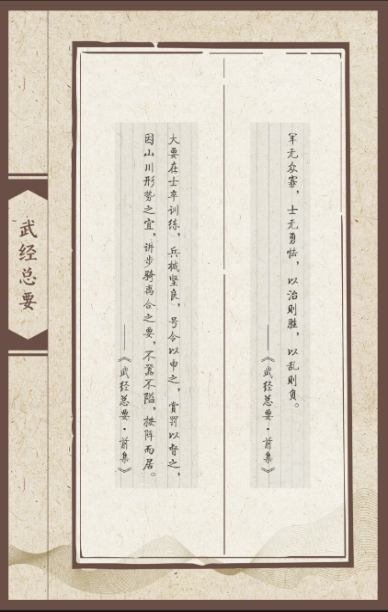 军无众寡，士无勇怯，以治则胜，以乱则负。
——《武经总要·前集》
大要在士卒训练，兵械坚良，号令以申之，赏罚以督之，
因山川形势之宜，讲步骑离合之要，不嚣不隘，按阵而居。
——《武经总要·前集》
武经总要